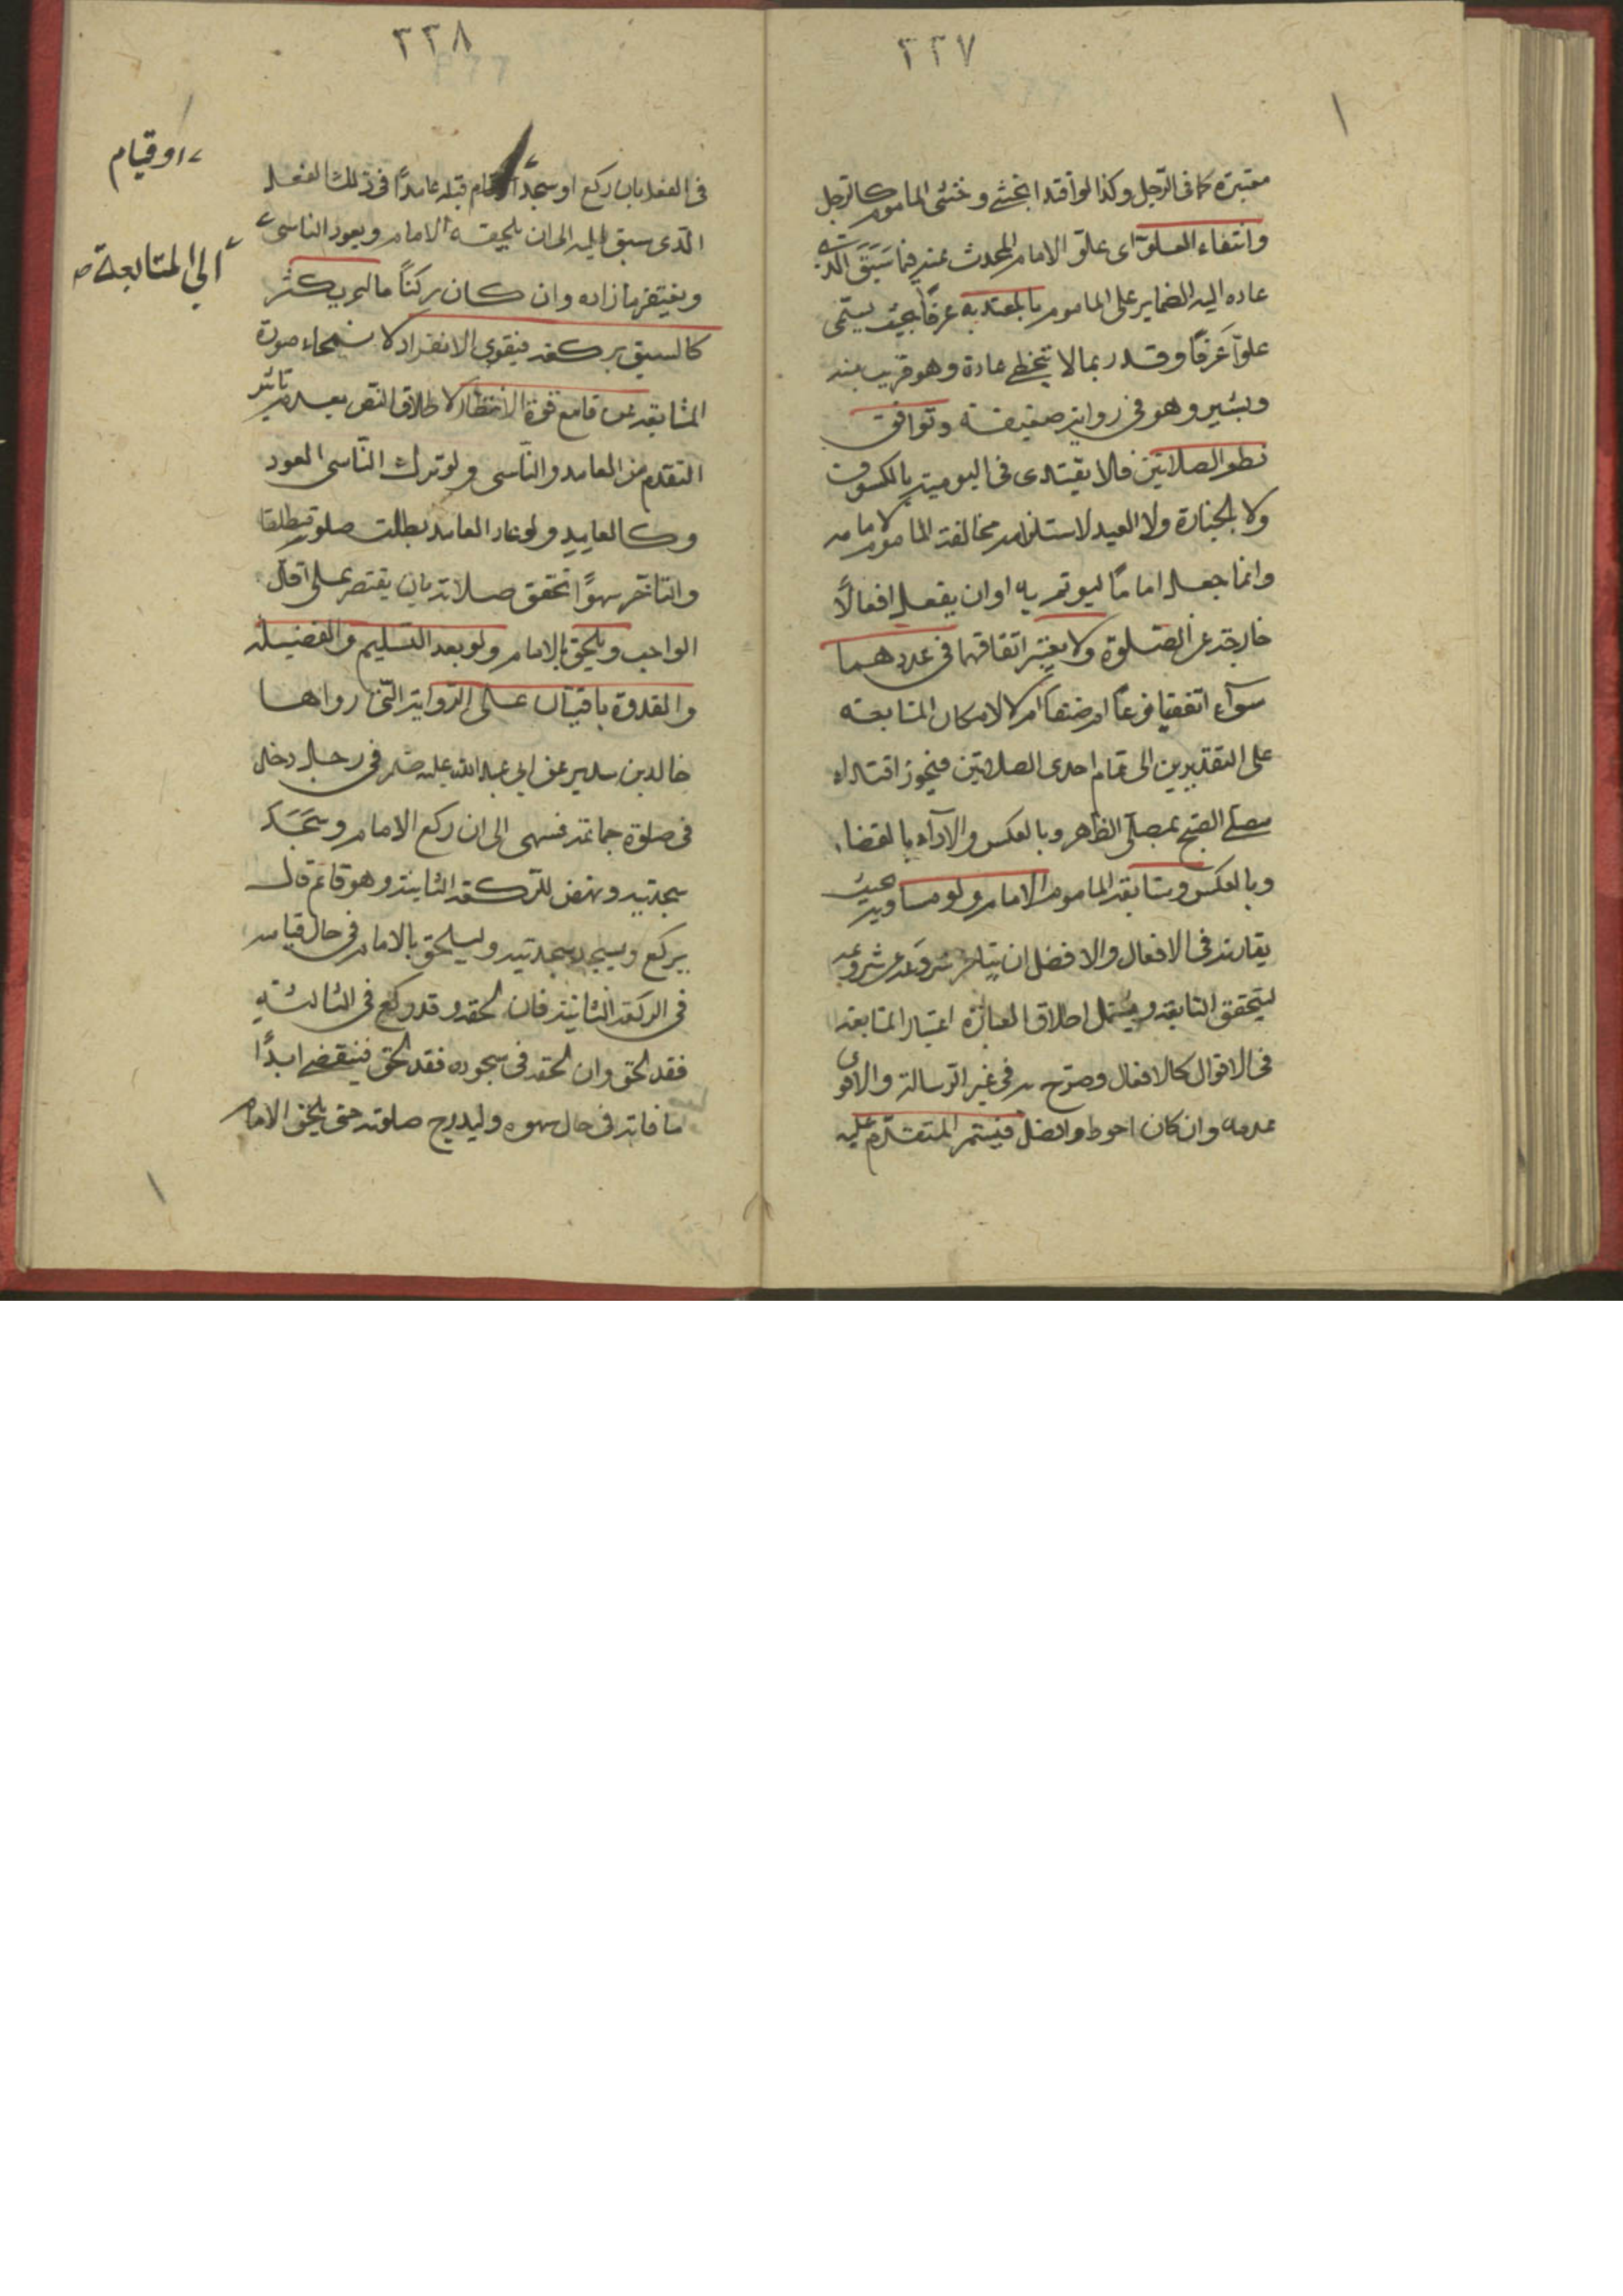 ٣٣٧
معتبرة كما فى الرّجل وكذا لو اقتدا الخنثى وخنثى المأموم كالرّجل
وانتفاء العلوّ اى علوّ الامام المحدث عنه فيما سَبَقَ الّذى
عاده اليه الضماير على المأموم بالمعتد به عرفاً بحيث يسمّى
علوّا عَرفًا وقدر بما لا يتخطى عادة وهو قريب منه
وبشبر وهو فى رواية ضعيفة وتوافق
نظم الصلاتين فلا يقتدى فى اليومية بالكسوف
ولا بالجنازة ولا العيد لاستلزامه مخالفة المأموم لامامه
وانما جعل امامًا ليوتم به او ان يفعل افعالًا
خارجة عن الصّلوة ولا يعتبر اتفاقهما فى عددهما
سوآء اتفقتا فرعًا ام صنفًا ام لا لامكان المتابعة
على التقديرين الى تمام احدى الصلاتين فيجوز اقتداء
مصلّى الصّبح بمصلّى الظهر وبالعكس والاداء بالقضاء
وبالعكس ومتابعة المأموم الامام ولو مساوية بحيث
يقارنه فى الافعال والافضل ان يتاخر شروعه عن شروعه
ليتحقق التابعة ويشمل اطلاق العبارة اعتبار المتابعة
فى الاقوال كالافعال وصرّح به فى غير الرسالة والاقوى
عدمه وان كان احوط وافضل فيستمر المتقدّم عليه
٣٣٨
فى الفعل بان ركع او سجد او قام قبله عامدًا فى ذلك الفعل
الّذى سبق اليه الى ان يلحقه الامام ويعود الناسى
ويغتفر ما زاده وان كان ركنًا ما لم يكثر
كالسبق بركعة فيقوى الانفراد لانمحاء صورة
المتابعة عن قامع قوة الانتظار لاطلاق النص بعدم تاثير
التقدّم من العامد والنّاسى ولو ترك النّاسى العود
وكالعامد ولو عاد العامد بطلت صلوته مطلقا
والتأخّر سهوًا تحقق صلاته بان يقتصر على اقلّ
الواجب ويلحق بالامام ولو بعد التسليم والفضيلة
والقدوة باقيتان على الرّواية التى رواها
خالد بن سدير عن ابى عبد الله عليه السلم فى رجل دخل
فى صلوة جماعة فسهى الى ان ركع الامام وسَجَدَ
سجدتيه ونهض للرّكعة الثانية وهو قائم قال
يركع ويسجد سجدتيه وليلحق بالامام فى حال قيامه
فى الركعة الثانية فان لحقه وقد ركع فى الثالثة
فقد لحق وان لحقه فى سجوده فقد لحق فينقضى ابدًا
ما فاته فى حال سهوه وليدرج صلوته حتى يلحق الامام
او قيام
الى المتابعة صح